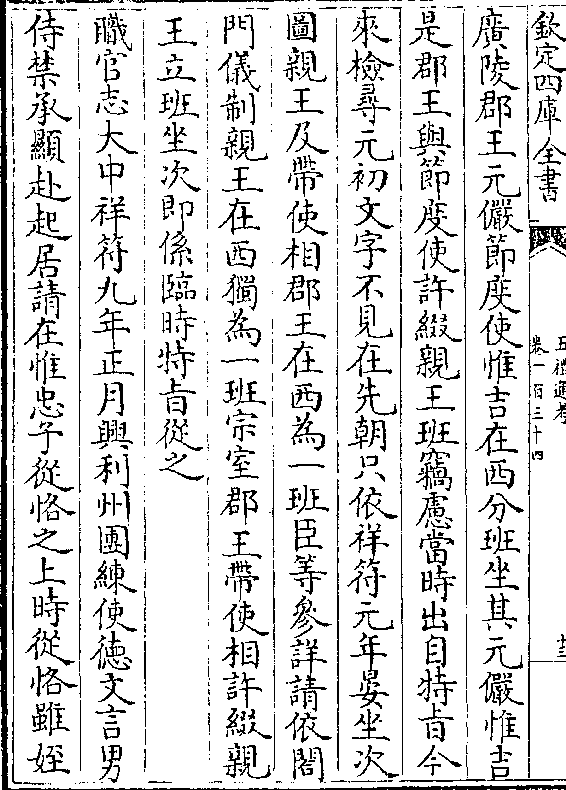 欽定四庫全書
五禮通考
卷一百三十四
廣陵郡王元儼節度使惟吉在西分班坐其元儼惟吉
是郡王與節度使許綴親王班竊慮當時出自特旨今
來檢尋元初文字不見在先朝只依祥符元年晏坐次
圖親王及帶使相郡王在西為一班臣等參詳請依閤
門儀制親王在西獨為一班宗室郡王帶使相許綴親
王立班坐次即係臨時特旨從之
職官志大中祥符九年正月興利州團練使德文言男
侍禁承顯赴起居請在惟忠子從恪之上時從恪雖姪